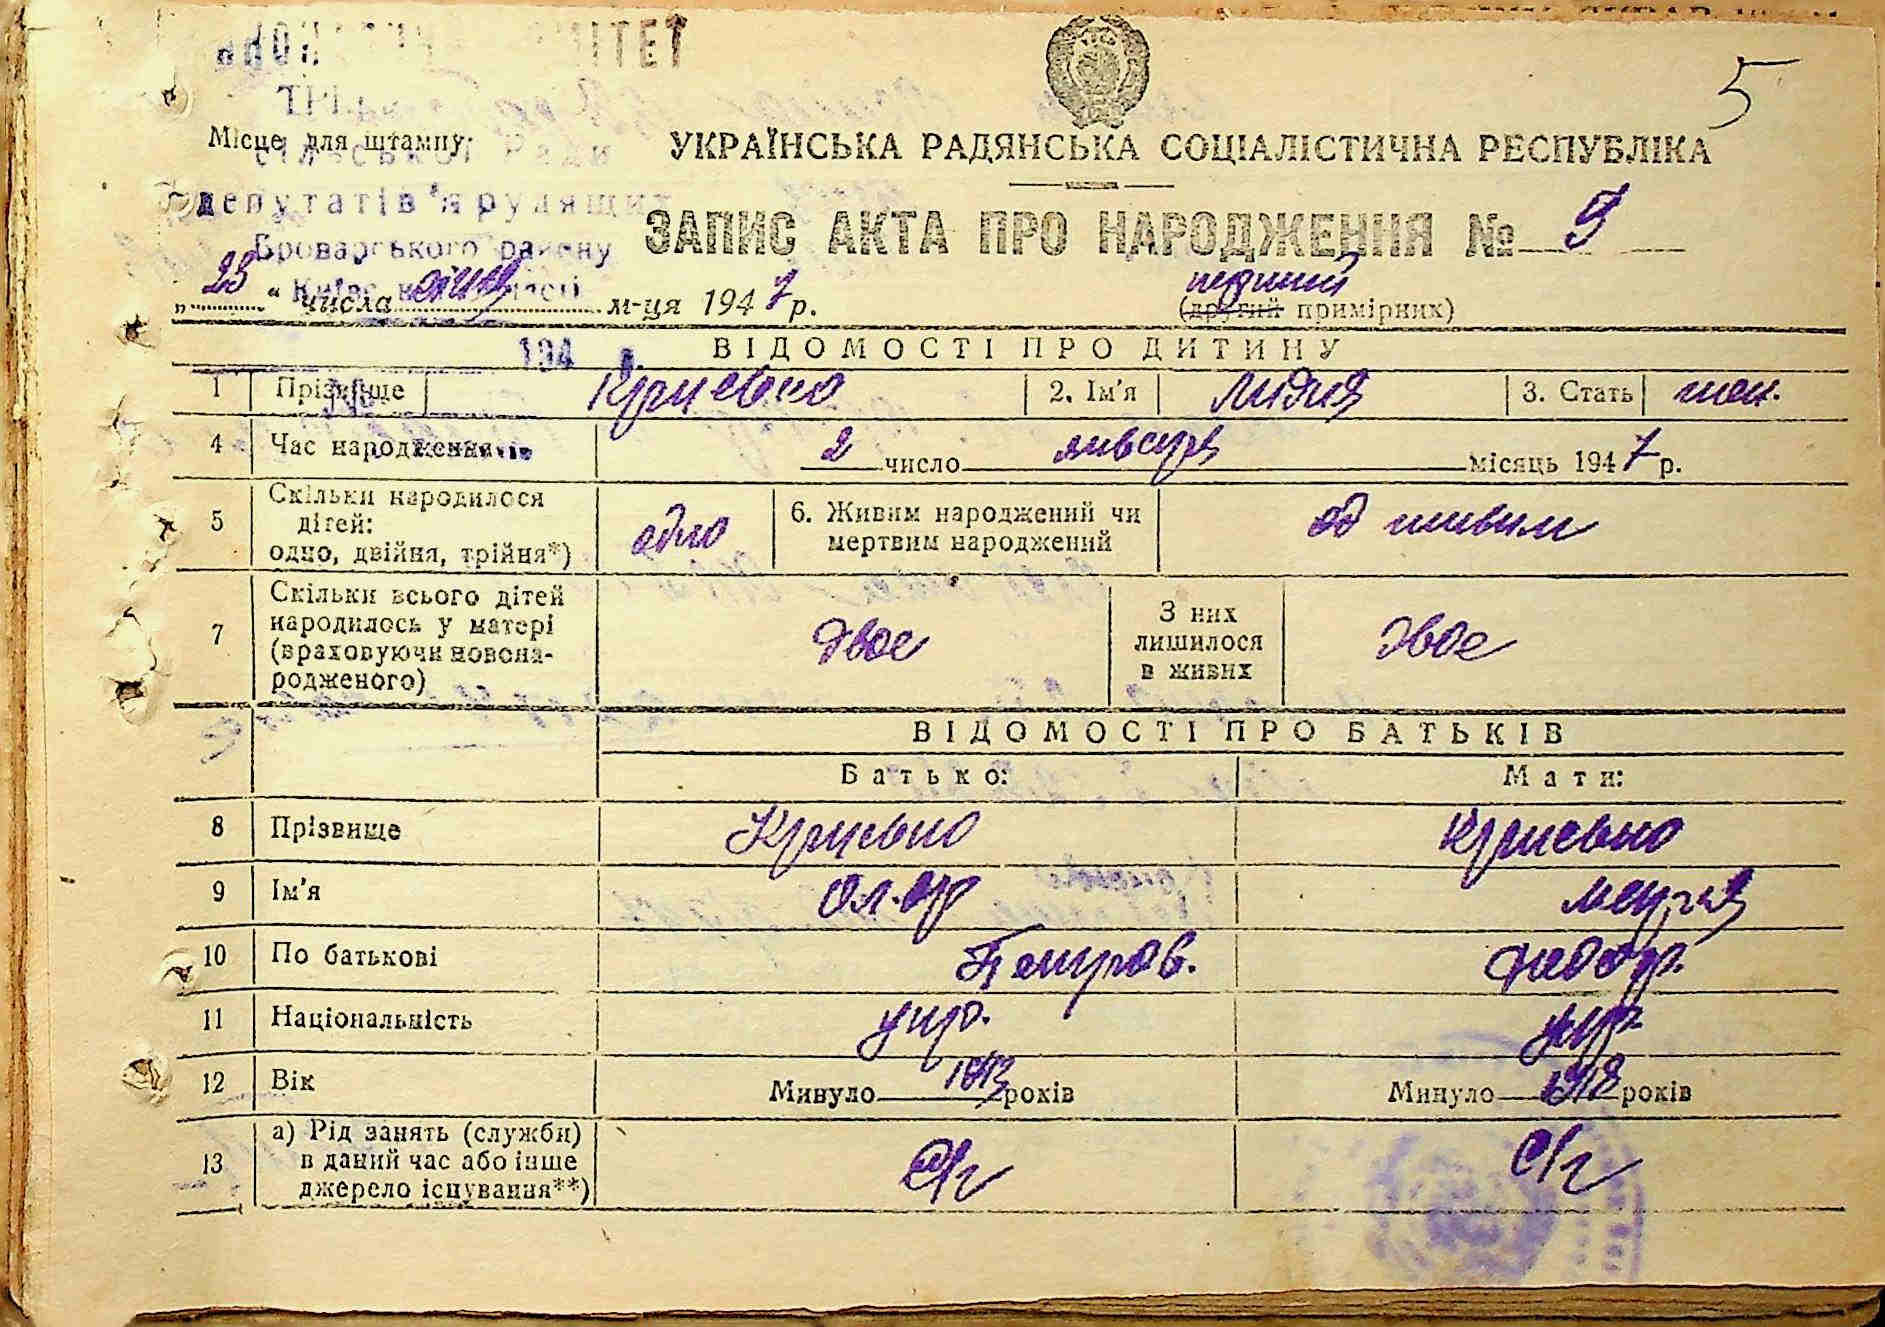 5
Місце для штампу
сільської Ради
депутатів трудящих
Броварського району
УКРАЇНСЬКА РАДЯНСЬКА СОЦІАЛІСТИЧНА РЕСПУБЛІКА
ЗАПИС АКТА ПРО НАРОДЖЕННЯ № 9
„25“ числа січня м-ця 1947 р.
перший
(другий примірник)
194
ВІДОМОСТІ ПРО ДИТИНУ
1 Прізвище 2. Ім'я Лидия 3. Стать жен.
4 Час народження 2 число января місяць 1947 р.
5 Скільки народилося дітей: одно, двійня, трійня*) одно 6. Живим народжений чи мертвим народжений живым
7 Скільки всього дітей народилось у матері (враховуючи новона-родженого) двое З них лишилося в живих двое
ВІДОМОСТІ ПРО БАТЬКІВ
Батько: Мати:
8 Прізвище
9 Ім'я Мария
10 По батькові Петров. Федор.
11 Національність укр. укр.
12 Вік Минуло 1913 років Минуло 1918 років
13 а) Рід занять (служби) в даний час або інше джерело існування**) с/г с/г